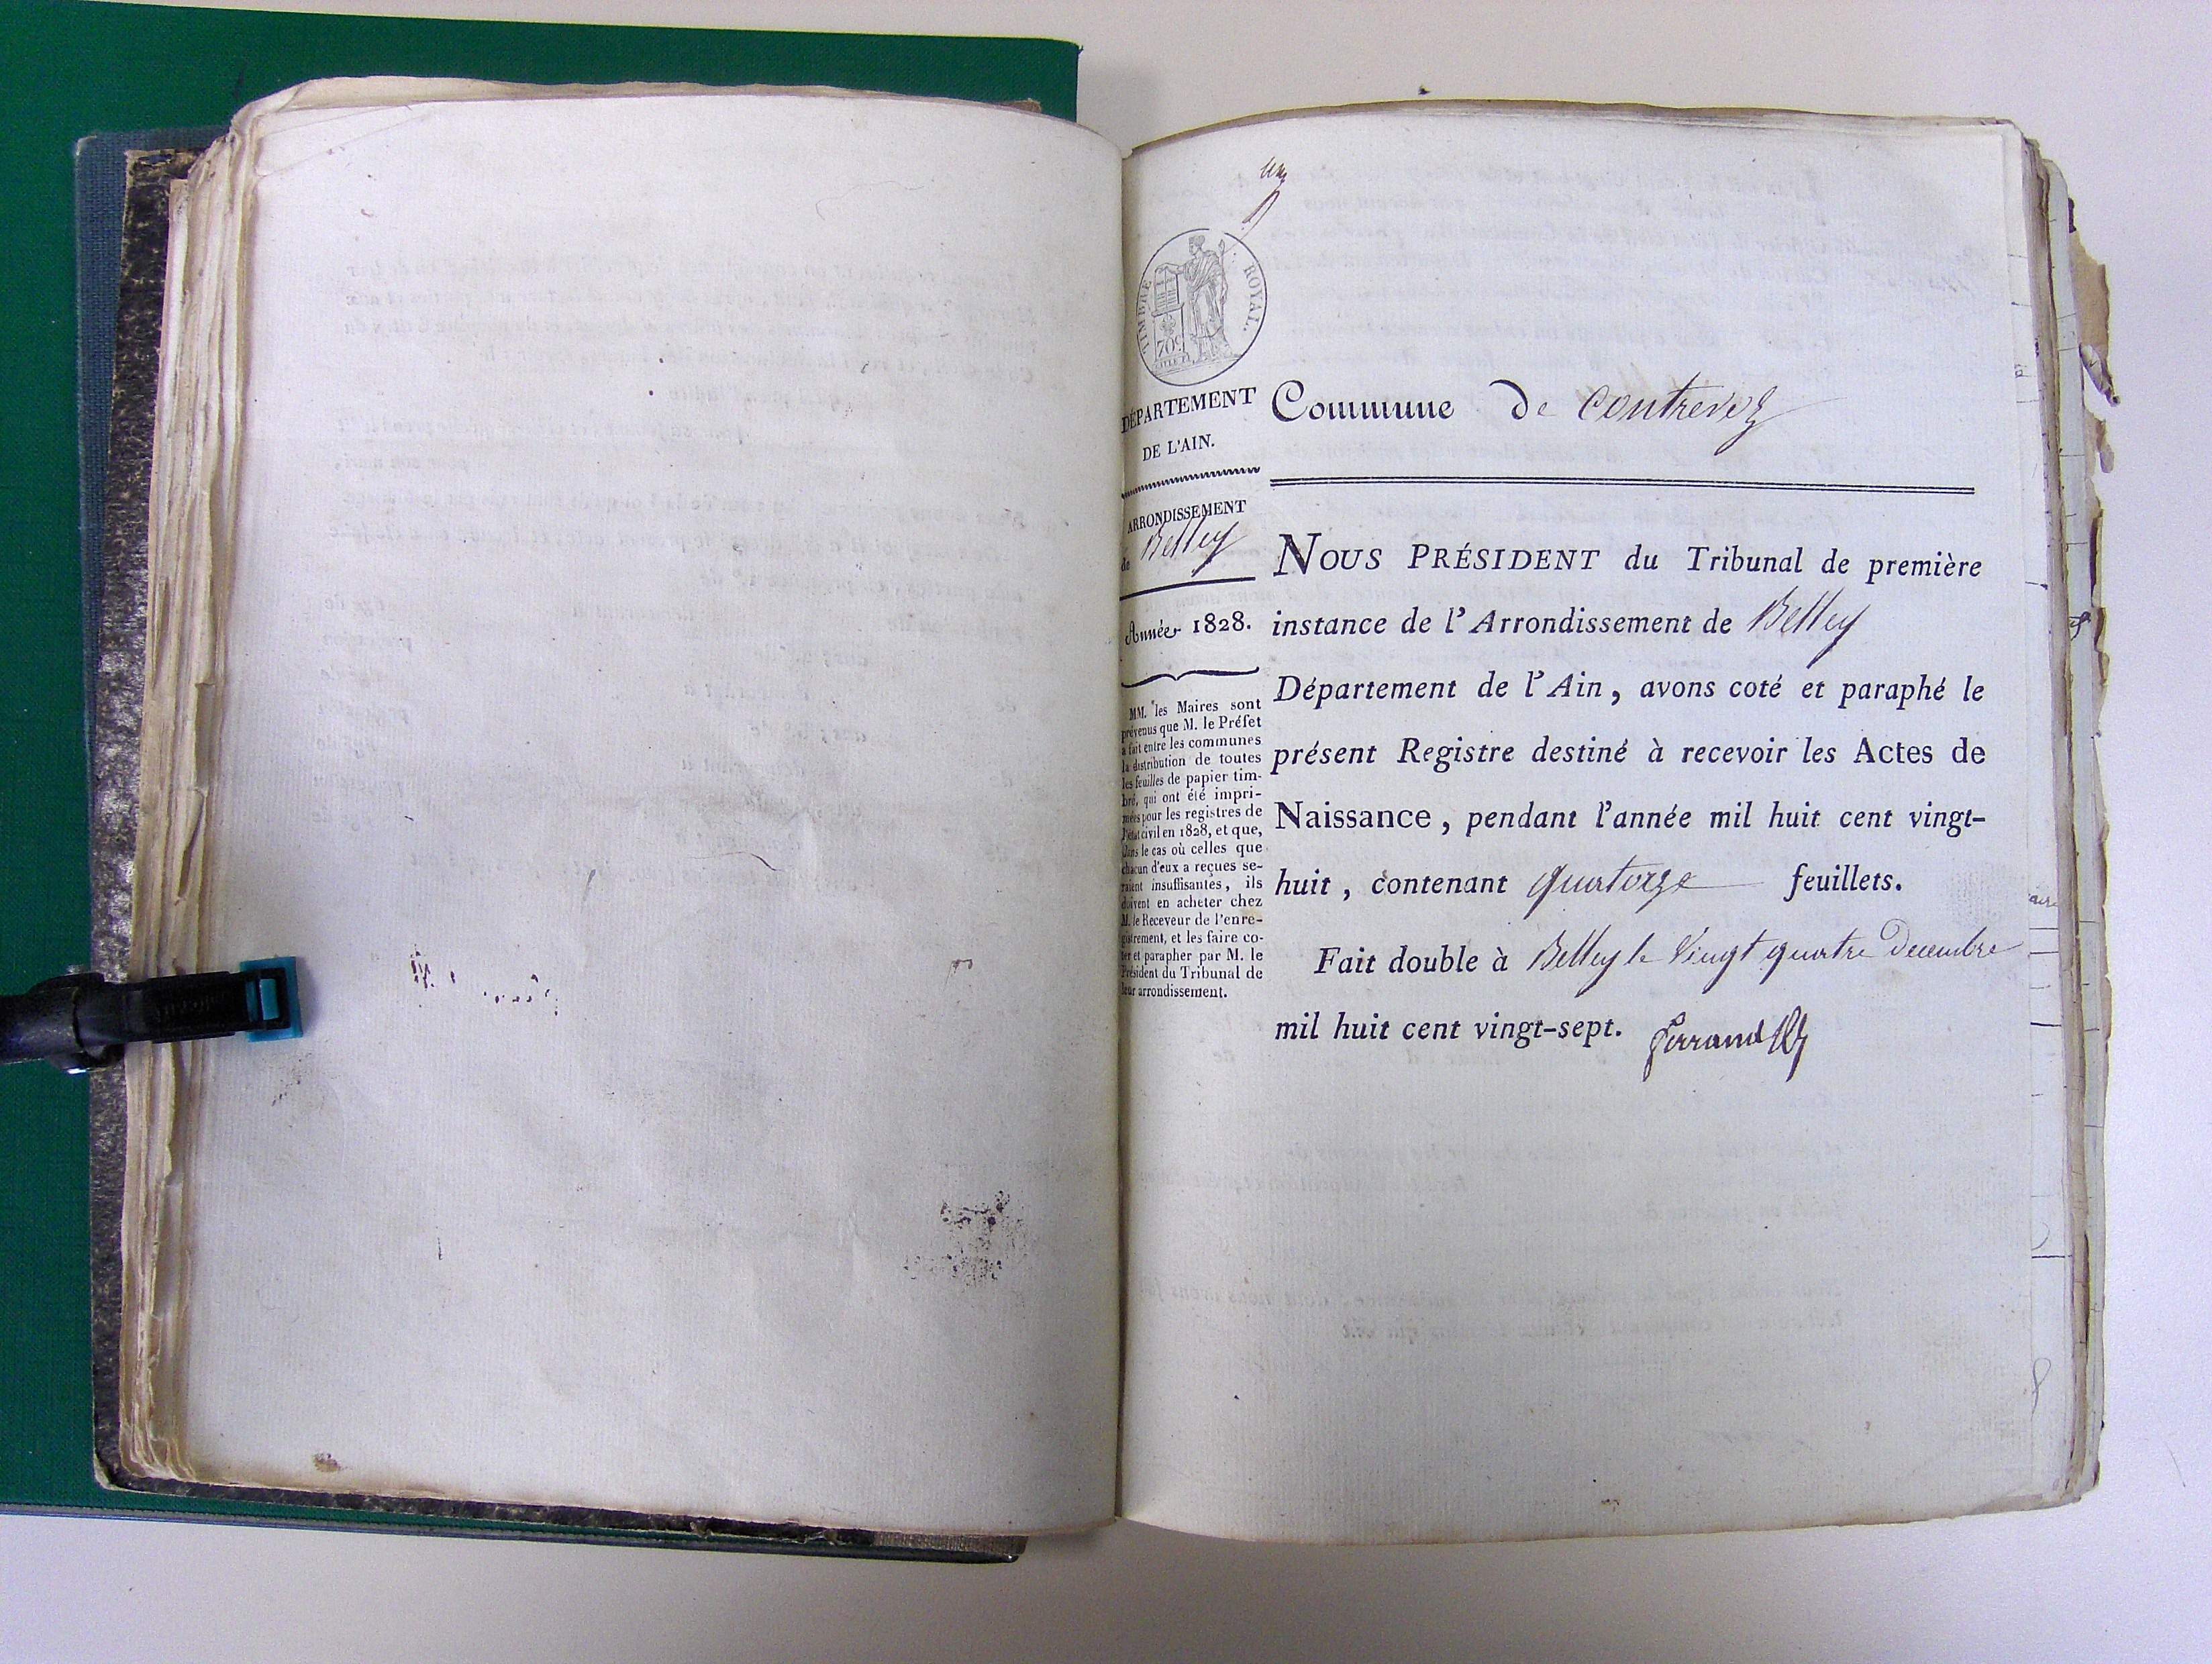 un
TIMBRE ROYAL.
70c
DÉPARTEMENT
DE L'AIN.
ARRONDISSEMENT
de Belley
Année 1828.
MM. les Maires sont
prévenus que M. le Préfet
a fait entre les communes
la distribution de toutes
les feuilles de papier tim-
bré, qui ont été impri-
mées pour les registres de
l'état civil en 1828, et que,
dans le cas où celles que
chacun d'eux a reçues se-
raient insuffisantes, ils
doivent en acheter chez
M. le Receveur de l'enre-
gistrement, et les faire co-
ter et parapher par M. le
Président du Tribunal de
leur arrondissement.
Commune de Contrevoz
NOUS PRÉSIDENT du Tribunal de première
instance de l'Arrondissement de Belley
Département de l'Ain, avons coté et paraphé le
présent Registre destiné à recevoir les Actes de
Naissance, pendant l'année mil huit cent vingt-
huit, contenant quatorze feuillets.
Fait double à Belley le Vingt quatre Decembre
mil huit cent vingt-sept. ferrand